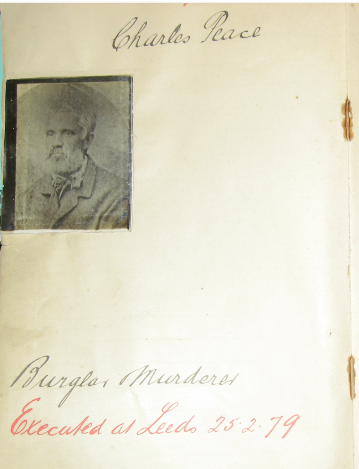 Charles Peace
Burglar Murderer
Executed at Leeds 25.2.79